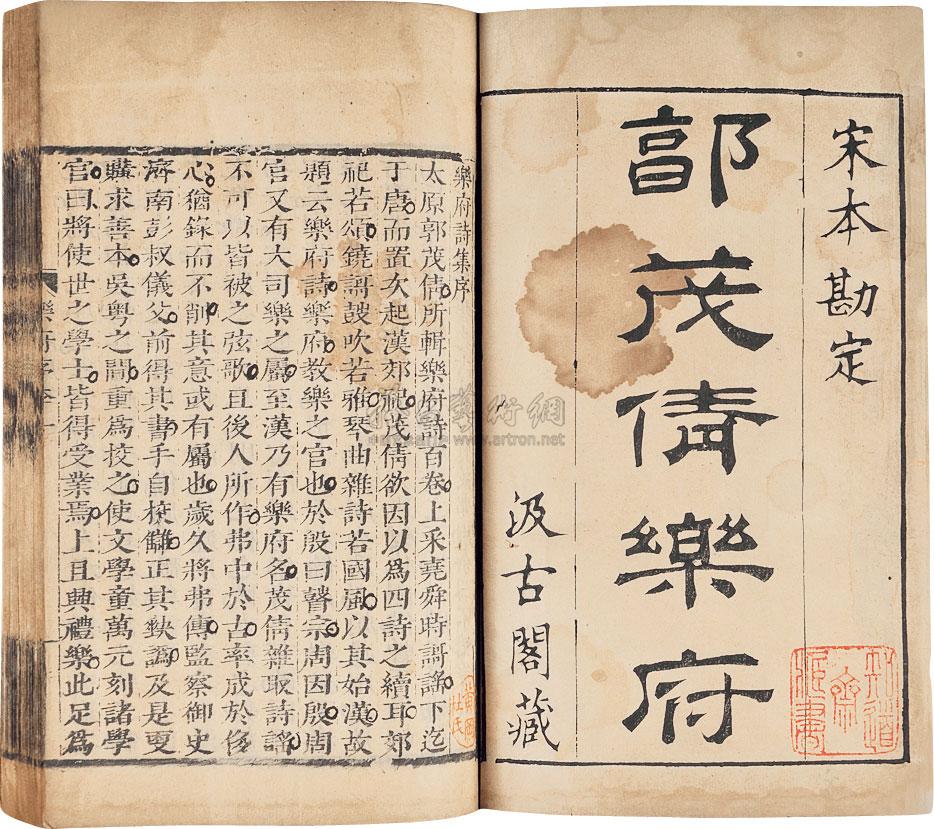 宋本勘定
郭茂倩樂府
汲古閣藏
樂府詩集序
太原郭茂倩所輯樂府詩百卷上采堯舜時謌謠下迄
于唐而置次起漢郊祀茂倩欲因以為四詩之續耳郊
祀若頌鐃謌鼓吹若雅琴曲雜詩若國風以其始漢故
題云樂府詩樂府教樂之官也於殷曰瞽宗周因殷周
官又有大司樂之屬至漢乃有樂府名茂倩雜取詩謠
不可以皆被之弦歌且後人所作弗中於古率成於侈
心猶錄而不削其意或有屬也歲久將弗傳監察御史
濟南彭叔儀父前得其書手自挍讎正其缺譌及是更
購求善本吳粵之間重為挍之使文學童萬元刻諸學
官曰將使世之學士皆得受業焉上且典禮樂此足為
樂府序
artron.net